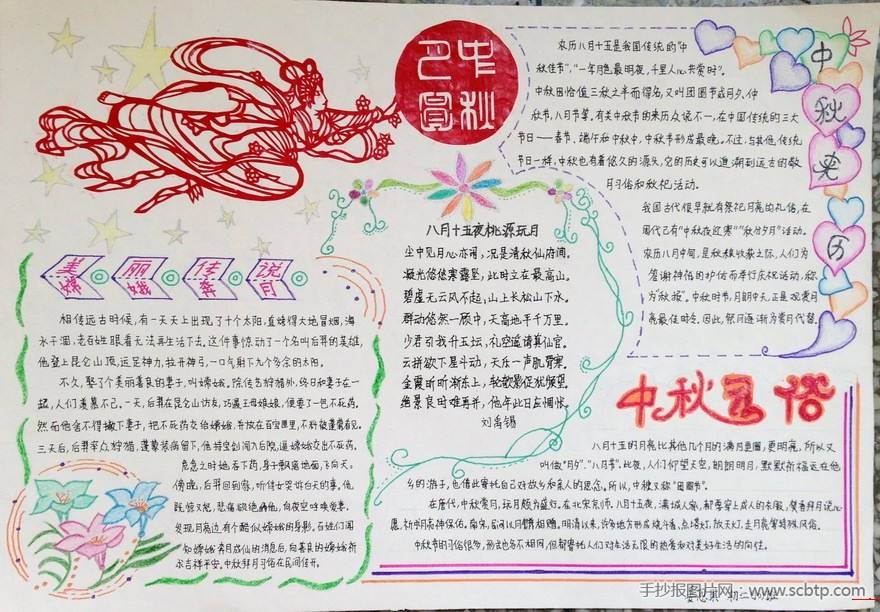 中秋
月圆
中秋来历
农历八月十五是我国传统的“中
秋佳节”,“一年月色最明夜,千里人心共赏时”。
中秋因恰值三秋之半而得名,又叫团圆节或月夕、仲
秋节,八月节等,有关中秋节的来历众说不一,在中国传统的三大
节日——春节、端午和中秋中,中秋节形成最晚。不过,与其他传统
节日一样,中秋也有着悠久的源头,它的历史可以追溯到远古的敬
月习俗和秋祀活动。
我国古代很早就有祭祀月亮的礼俗,在
周代已有“中秋夜迎寒”“秋分夕月”活动。
农历八月中旬,是秋粮收获之际,人们为
答谢神祇的护佑而举行庆祝活动,称
为“秋报”。中秋时节,月朗中天,正是观赏月
亮最佳时令。因此,祭月逐渐为赏月代替。
八月十五夜桃源玩月
尘中见月心亦闲,况是清秋仙府间。
凝光悠悠寒露坠,此时立在最高山。
碧虚无云风不起,山上长松山下水。
群动悠然一顾中,天高地平千万里。
少君引我升玉坛,礼空遥请真仙官。
云拼欲下星斗动,天乐一声肌骨寒。
金霞昕昕渐东上,轮欹影促犹频望。
绝景良时难再并,他年此日应惆怅。
刘禹锡
美丽传说
嫦娥奔月
相传远古时候,有一天天上出现了十个太阳,直烤得大地冒烟,海
水干涸,老百姓眼看无法再生活下去。这件事惊动了一个名叫后羿的英雄,
他登上昆仑山顶,运足神力,拉开神弓,一口气射下九个多余的太阳。
不久,娶了个美丽善良的妻子,叫嫦娥。除传艺狩猎外,终日和妻子在一
起,人们羡慕不已。一天,后羿在昆仑山访友,巧遇王母娘娘,便要了一包不死药。
然而他舍不得撇下妻子,把不死药交给嫦娥,吾放在百宝匣里,不料被蓬蒙看见。
三天后,后羿率众人狩猎,蓬蒙装病留下,他持宝剑闯入后院,逼嫦娥交出不死药。
危急之时她吞下药,身子飘离地面,飞向天。
傍晚,后羿回到家,听侍女哭诉白天的事,他
既惊又怒,悲痛欲绝的他,向夜空呼唤爱妻。
发现月亮边有个酷似嫦娥的身影。百姓们闻
知嫦娥奔月成仙的消息后,向善良的嫦娥祈
求吉祥平安。中秋拜月习俗在民间传开。
中秋习俗
八月十五的月亮比其他几个月的满月更圆,更明亮,所以又
叫做“月夕”、“八月节”。此夜,人们仰望天空,朗朗明月,默默祈福远在他
乡的游子,也借此寄托自己对故乡和亲人的思念。所以,中秋又称“团圆节”。
在唐代,中秋赏月、玩月颇为盛行。在北宋京师,八月十五夜,满城人家,都要穿上成人的衣服,焚香拜月说心
愿,祈求月亮神保佑。南宋,民间以月饼相赠。明清以来,许多地方形成烧斗香、点塔灯、放天灯、走月亮等特殊风俗。
中秋节的习俗很多,形式也多不相同,但都寄托人们对生活无限的热爱和对美好生活的向往。
手抄报图片网:www.scbtp.com